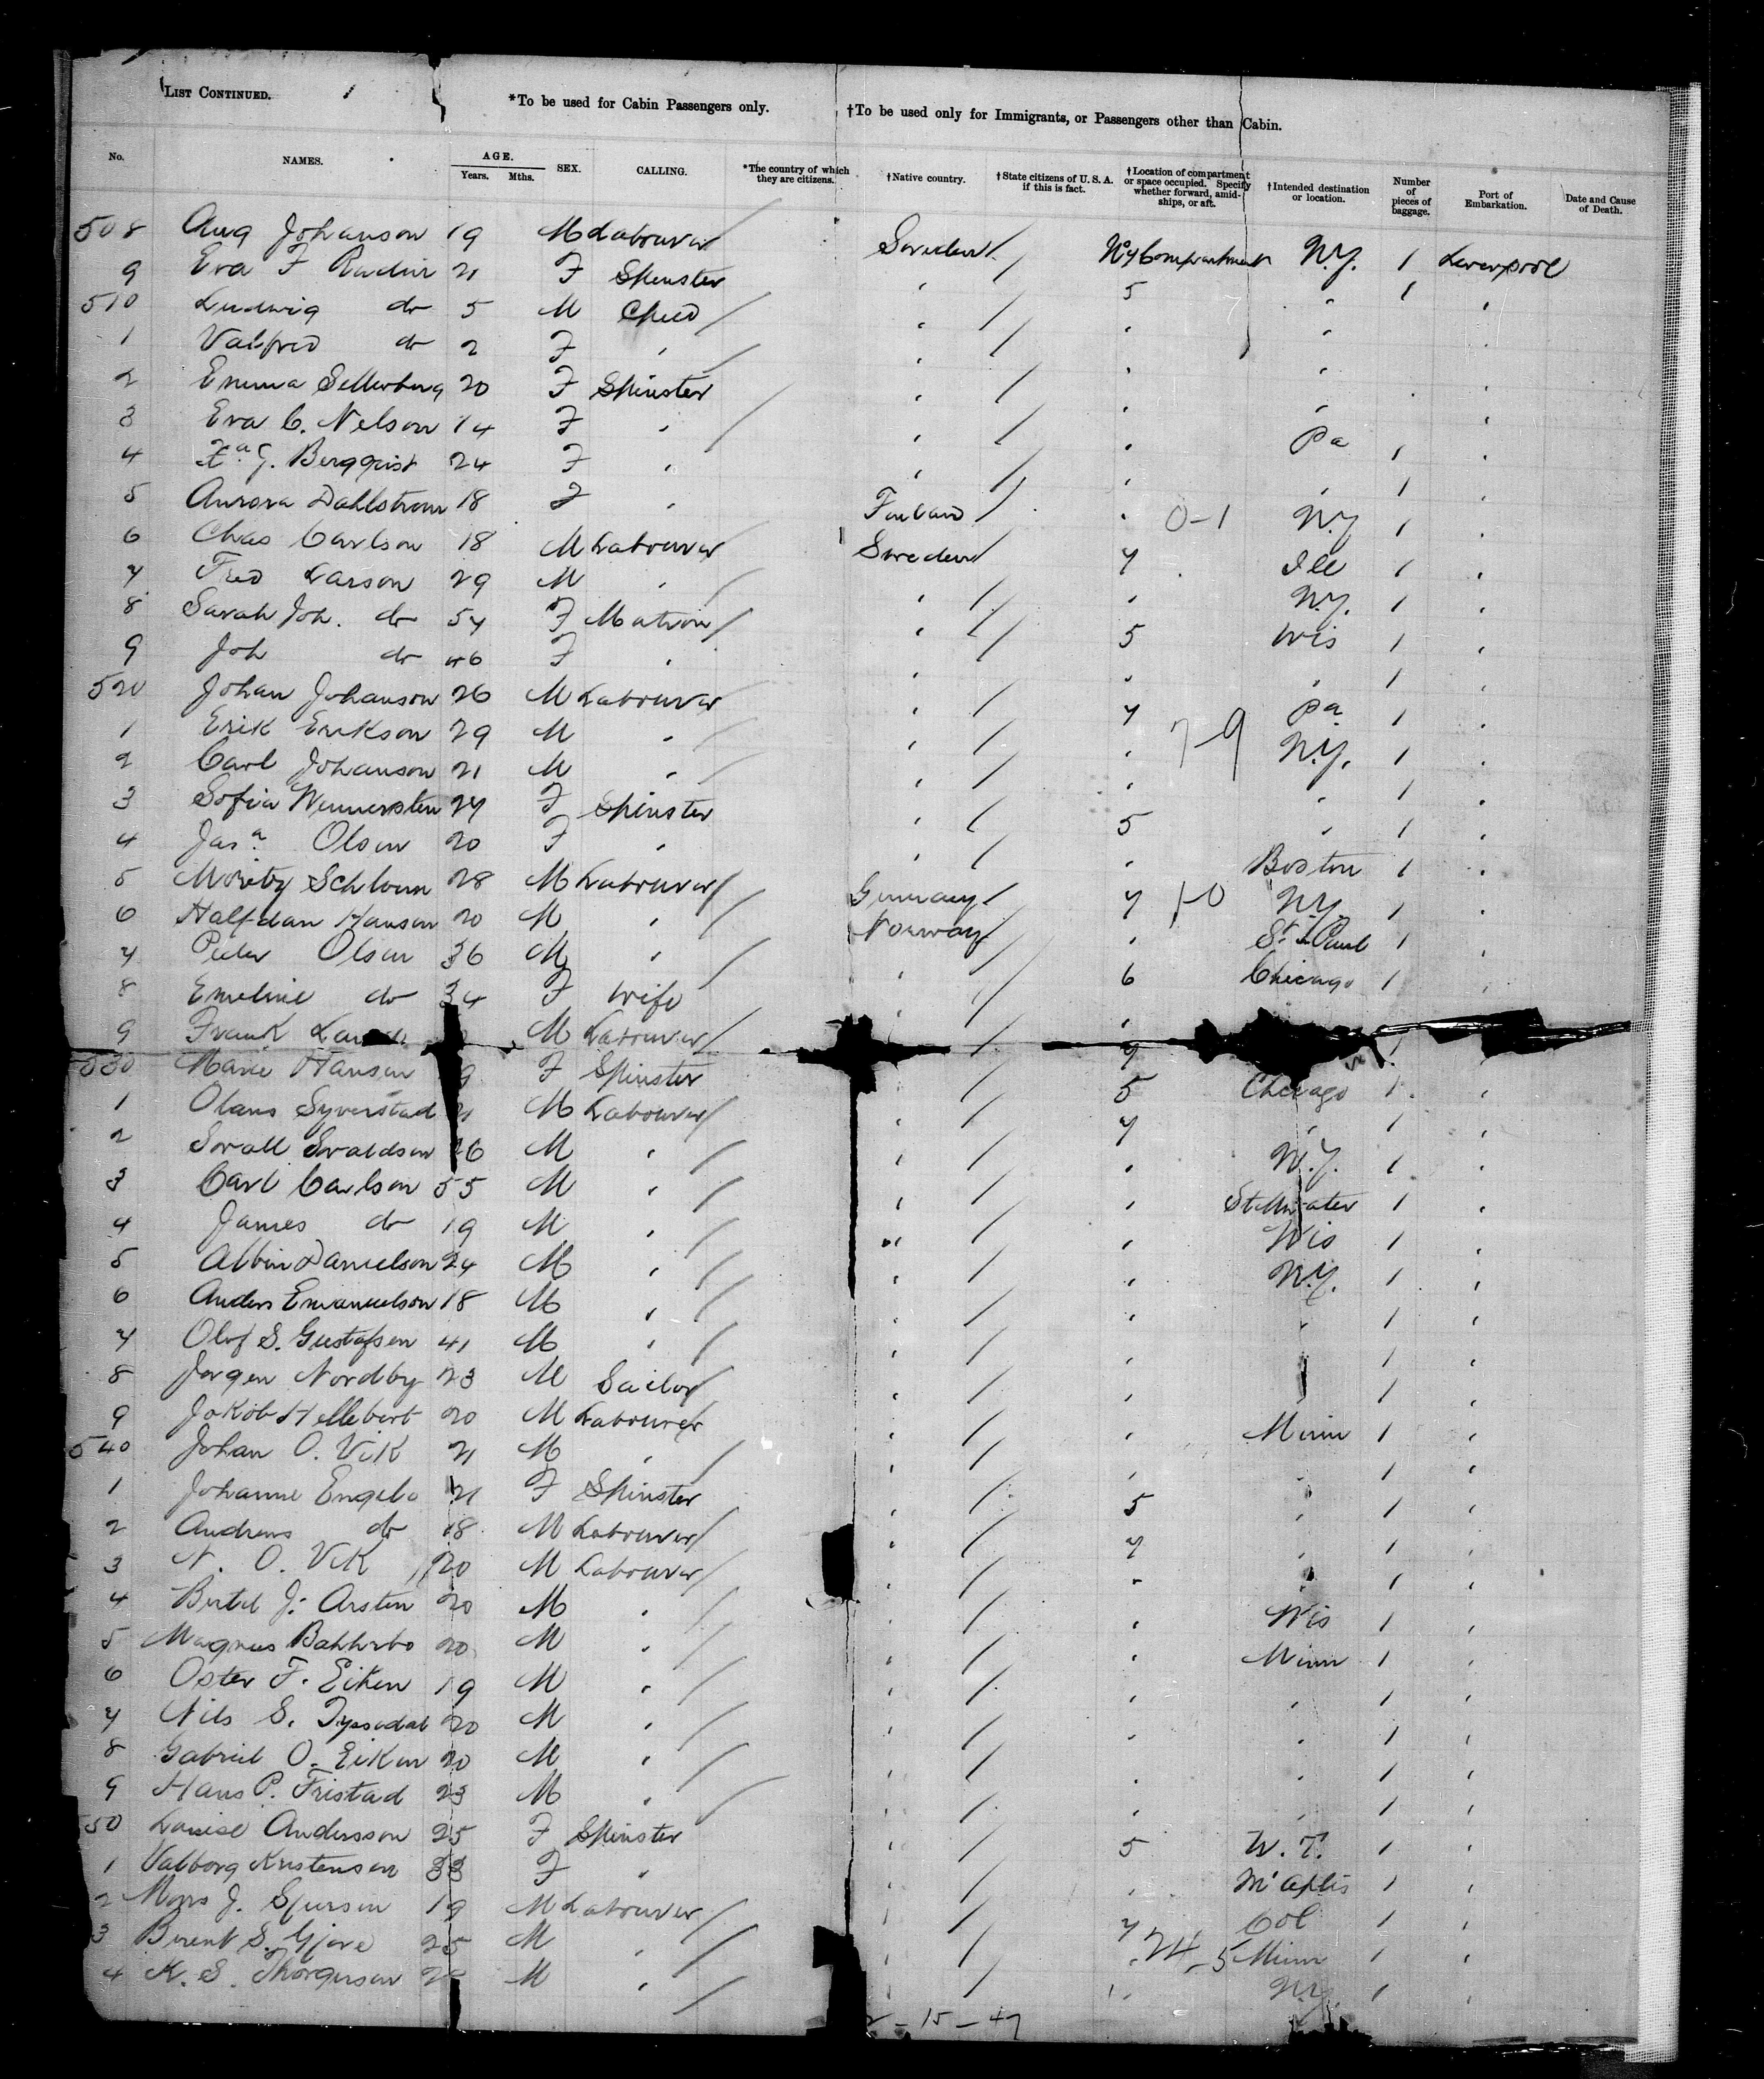 LIST CONTINUED. *To be used for Cabin Passengers only. †To be used only for Immigrants, or Passengers other than Cabin.
No. NAMES. AGE. Years. Mths. SEX. CALLING. *The country of which they are citizens. †Native country. †State citizens of U. S. A. if this is fact. †Location of compartment or space occupied. Specify whether forward, amidships, or aft. †Intended destination or location. Number of pieces of baggage. Port of Embarkation. Date and Cause of Death.
508 Aug Johanson 19 M Labourer Sweden No 7 Compartment N.Y. 1 Liverpool
9 Eva F 21 F Spinster " 5 " 1 "
510 Ludwig do 5 M Child " " " "
1 Valfred do 2 F " " " " "
2 Emma 20 F Spinster " " " "
3 Eva C. Nelson 14 F " " " Pa 1 "
4 G. Bergqvist 24 F " " " " 1 "
5 Aurora Dahlstrom 18 F " Finland " 0-1 N.Y 1 "
6 Chas Carlson 18 M Labourer Sweden 7 Ill 1 "
7 Fred Larson 29 M " " " N.Y. 1 "
8 Sarah Joh. do 57 F Matron " 5 Wis 1 "
9 Joh do 46 F " " " " 1 "
520 Johan Johanson 26 M Labourer " 7 Pa 1 "
1 Erik Erikson 29 M " " " 7-9 N.Y. 1 "
2 Carl Johanson 21 M " " " " 1 "
3 Sofia Wennersten 27 F Spinster " 5 " 1 "
4 Jasa Olsen 20 F " " " Boston 1 "
5 Moritz 28 M Labourer Germany 7 1-0 N.Y. 1 "
6 Halfdan Hanson 20 M " Norway " St Paul 1 "
7 Peder Olsen 36 M " " 6 Chicago 1 "
8 Emeline do 34 F Wife " "
9 Frank M Labourer 7 1
530 Marie Hansen F Spinster " 5 Chicago 1 "
1 Olaus Syverstad M Labourer " 7 " 1 "
2 26 M " " " N.Y. 1 "
3 Carl Carlson 55 M " " " Stillwater 1 "
4 James do 19 M " " " Wis 1 "
5 Albin Danielson 24 M " " " N.Y. 1 "
6 Anders Emanuelson 18 M " " " " 1 "
7 Olof S. Gustafsen 41 M " " " 1 "
8 Jorgen Nordby 23 M Sailor " " 1 "
9 Jakob Hellebert 20 M Labourer " " Minn 1 "
540 Johan O. Vik 21 M " " " " 1 "
1 Johanne 21 F Spinster " 5 " 1 "
2 Andreas do 18 M Labourer " 7 " 1 "
3 N. O. Vik 20 M Labourer " " " 1 "
4 J. 20 M " " " Wis 1 "
5 Magnus 20 M " " " Minn 1 "
6 Oster F. Eiken 19 M " " " " 1 "
7 Nils S. Tyssedal 20 M " " " " 1 "
8 Gabriel O. Eiken 20 M " " " " 1 "
9 Hans P. Fristad 23 M " " " " 1 "
550 Louise Andersson 25 F Spinster " 5 W. T. 1 "
1 Valborg Kristensen 33 F " " " M'aplis 1 "
2 J. 19 M Labourer " 7 Col 1 "
3 Berent S. Gjove 25 M " " " 24-5 Minn 1 "
4 K. S. Thorgersen M " " " N.Y. 1 "
- 15 - 47